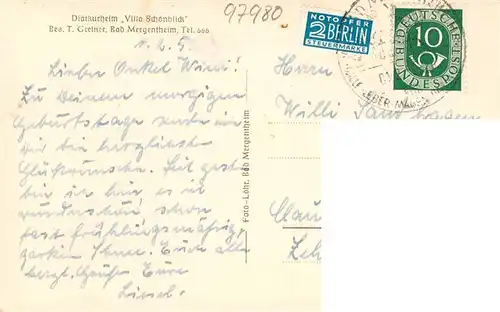 Diätkurheim „Villa Schönblick"
Bes. T. Greiner, Bad Mergentheim, Tel. 666
97980
NOTOPFER
2 BERLIN
STEUERMARKE
DEUTSCHE
BUNDESPOST
10
Lieber Onkel Willi!
Zu Deinem morgigen
Geburtstage sende ich
Dir die herzlichsten
Glückwünsche. Seit gestern
bin ich hier, es ist
wunderschön, schon
fast frühlingsmäßig,
Sonne. Euch allen
herzl. Grüße Eure
Liesel.
Herrn
Willi
Foto-Löhr, Bad Mergentheim